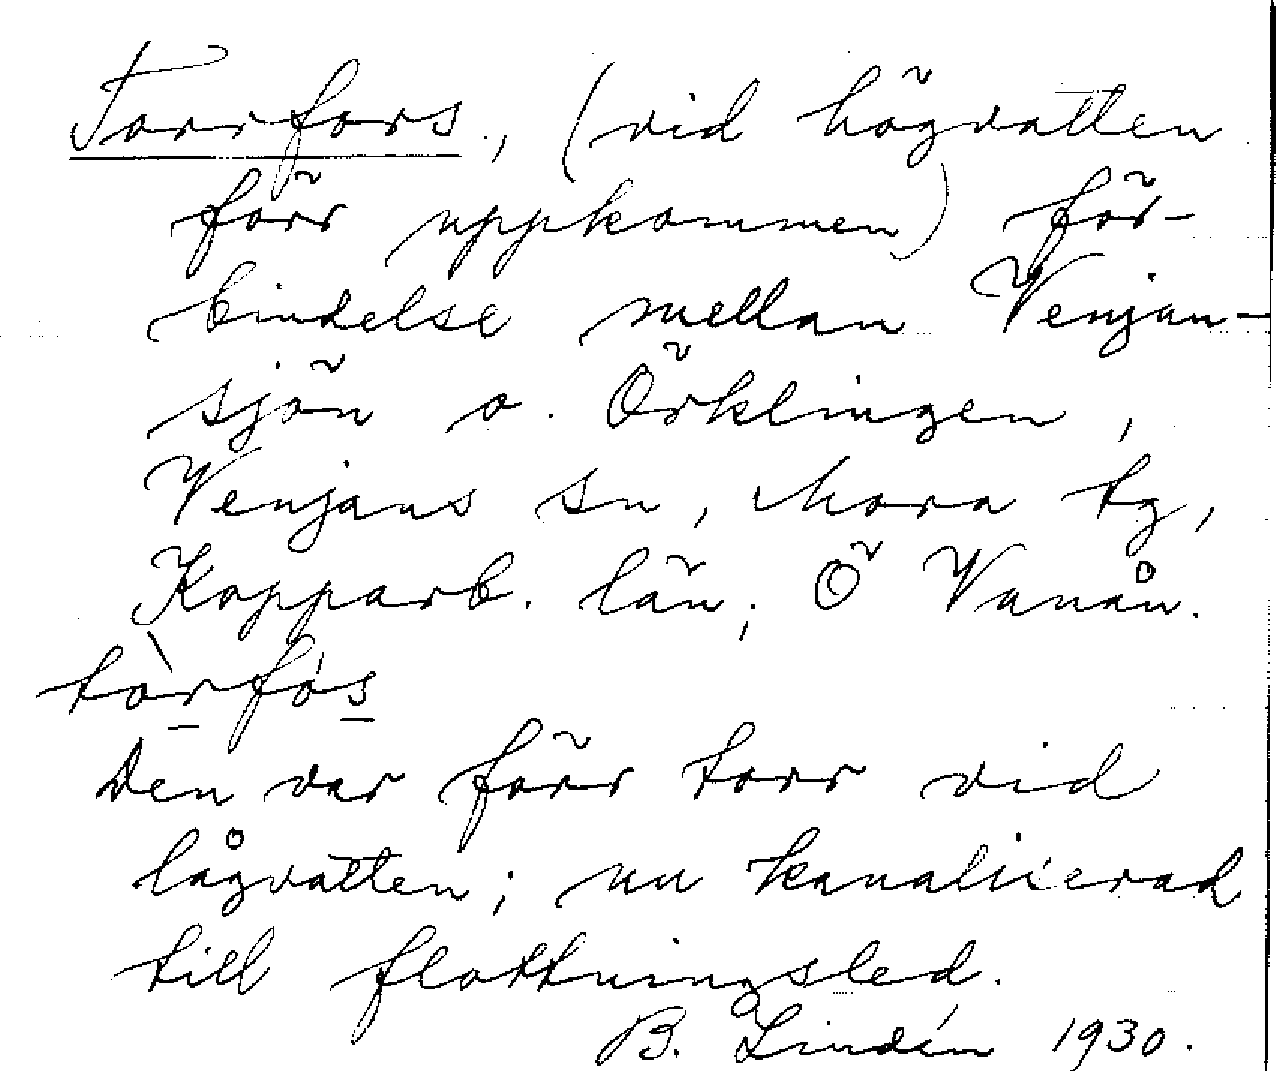 Torrfors, (vid högvatten
förr uppkommen) för-
bindelse mellan Venjan-
sjön o. Örklingen,
Venjans sn, Mora tg,
Kopparb. län; Ö Vanån.
tòrfo̍s
Den var förr torr vid
lågvatten; nu kanaliserad
till flottningsled.
B. Lindén 1930.